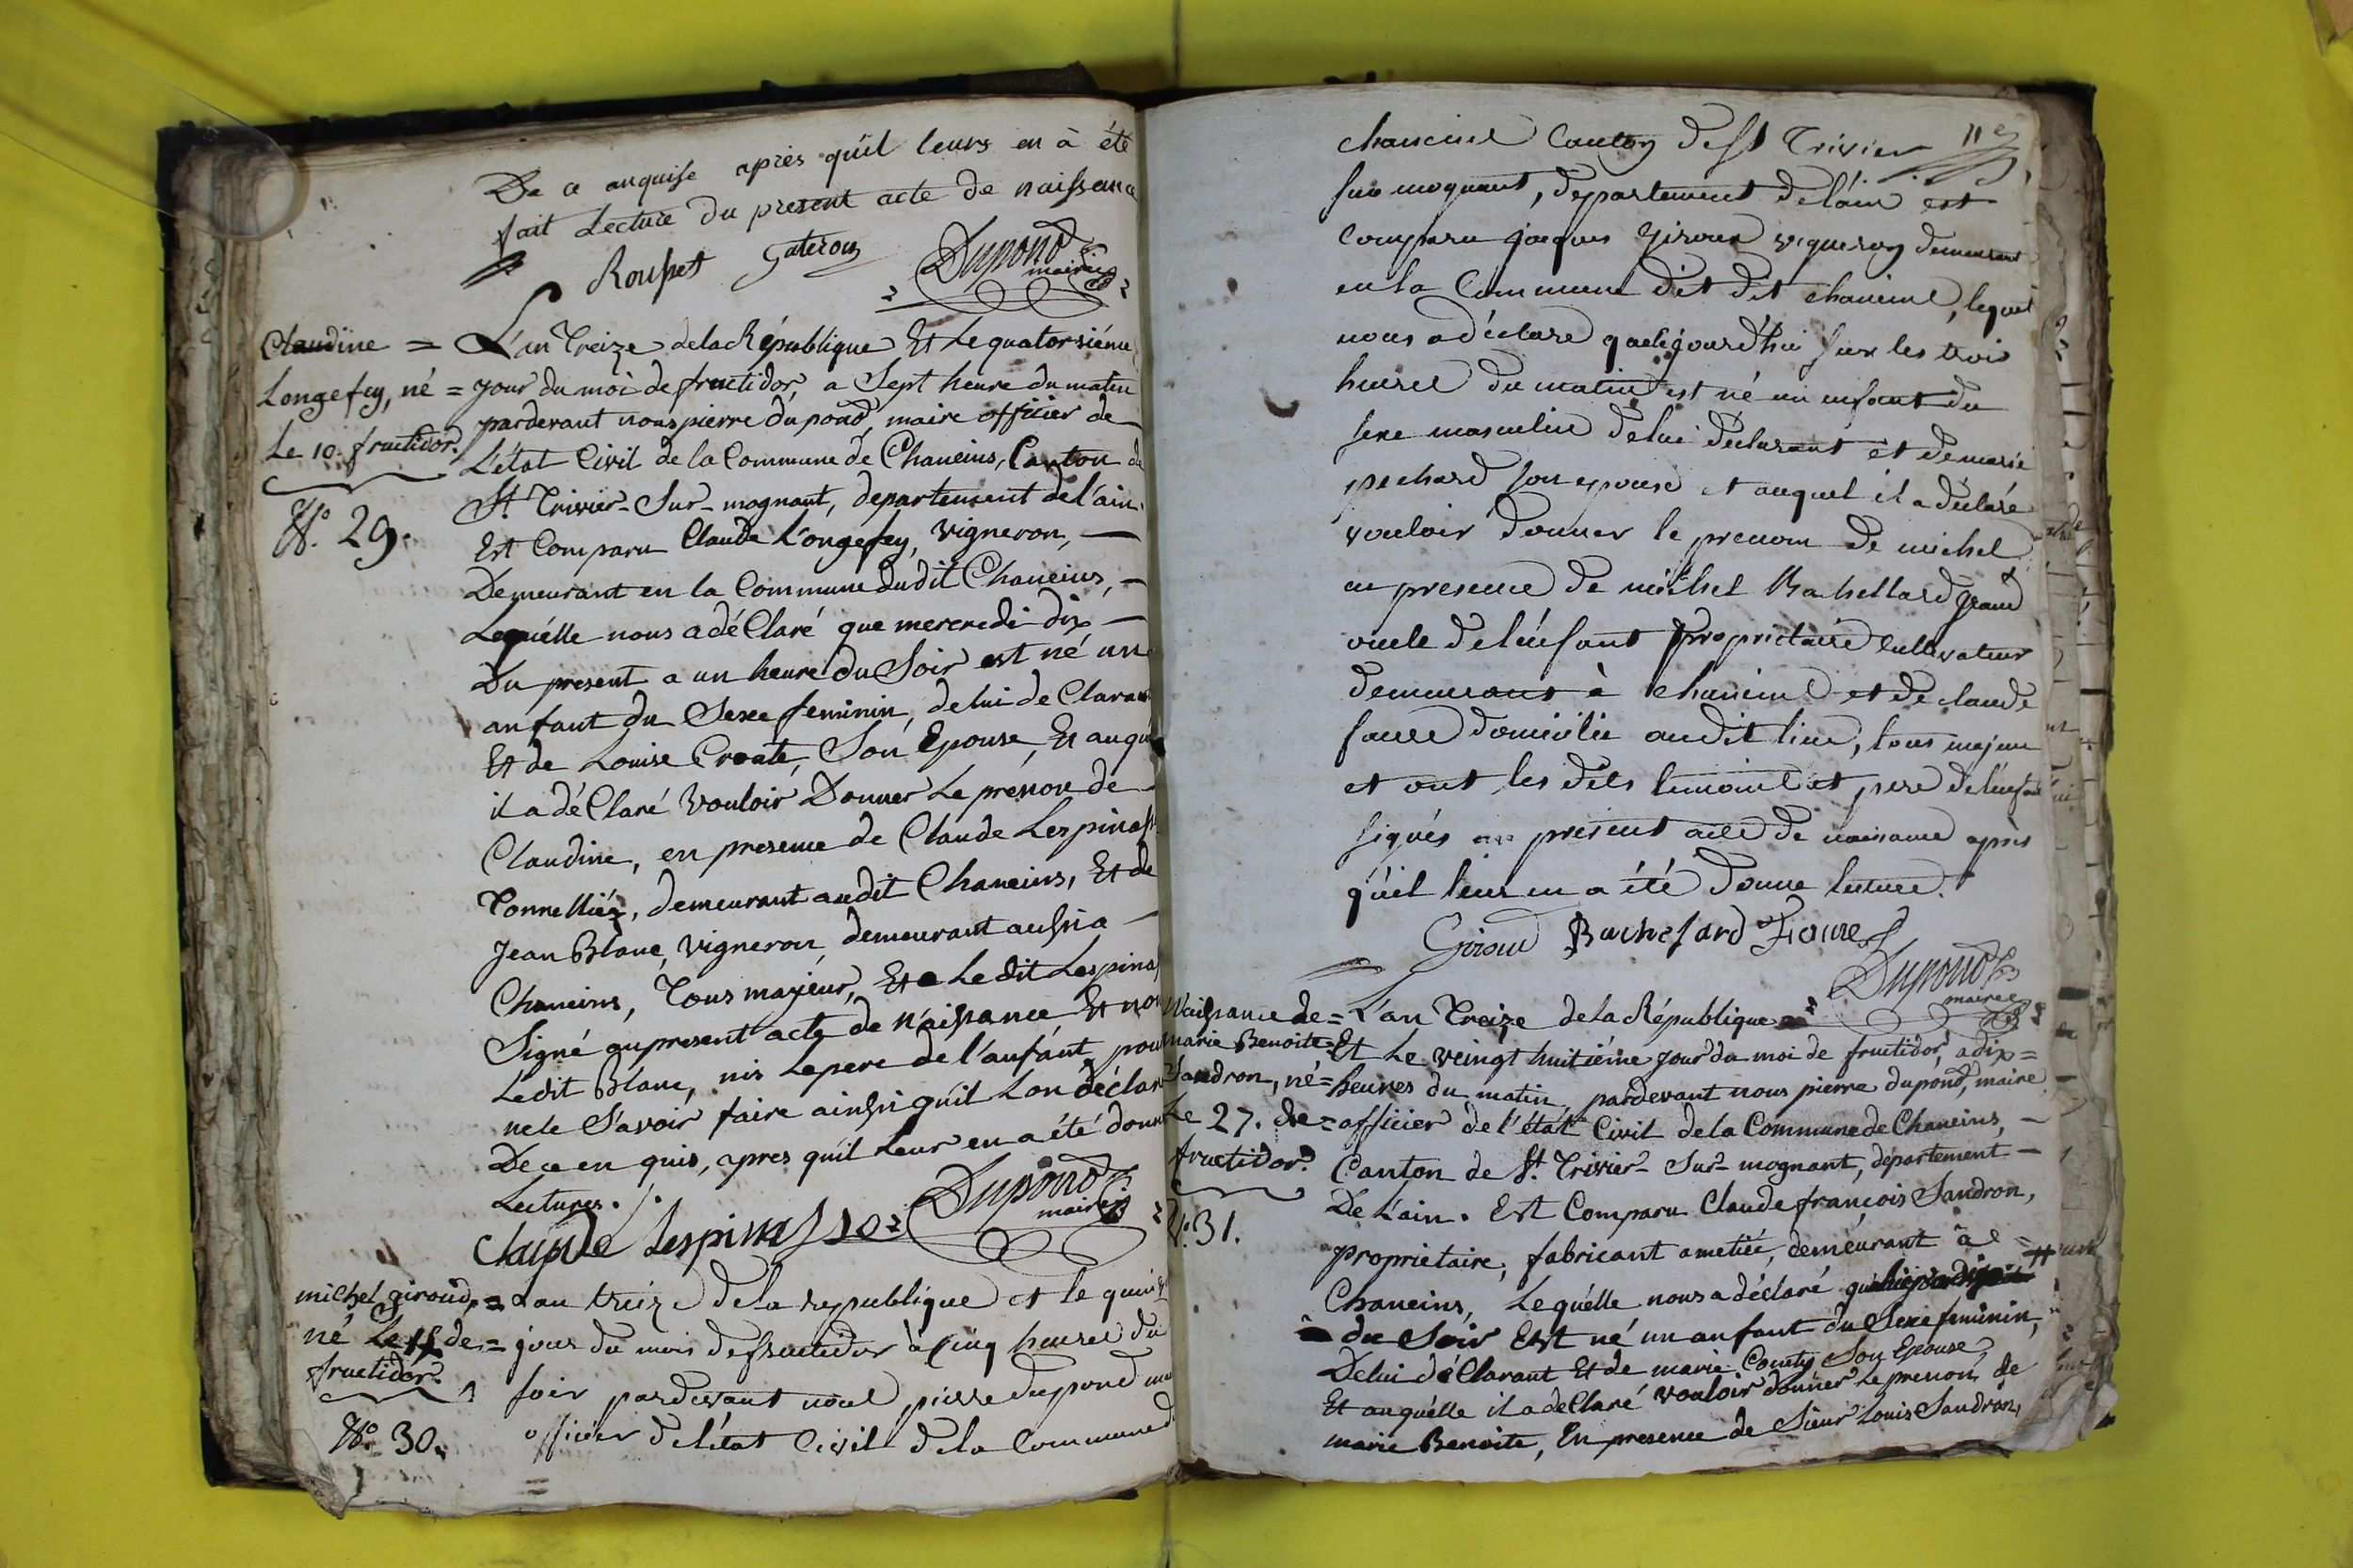 De ce anquise après qu'il leurs en à été
fait Lecture du present acte de naissance
Rousset Gateron Dupond maire
Claudine = L'an Treize de la République Et Le quatorsiéme
Longefey, né = jour du moi de fructidor, a Sept heure du matin
pardevant nous pierre dupond, maire officier de
Le 10. fructidor. L'état Civil de la Commune de Chaneins, Canton de
N.º 29. St. Trivier-Sur-mognant, departement de l'ain.
Est Comparu Claude Longefey, vigneron,
Demeurant en la Commune dudit Chaneins,
Lequélle nous a déClaré que mercredi dix
Du present a un heure du Soir est né un
anfant du Sexe feminin, de lui de Clarant
Et de Louise Croate, Son Epouse, Et auqu
il a déClaré vouloir Donner Le prenon de
Claudine, en presence de Claude Lespinass
Tonnelliér, demeurant audit Chaneins, Et de
Jean Blanc, vigneron demeurant aussi a
Chaneins, Tous majeur, Et Le dit Lespinas
Signé au present acte de n'aissance Et non
Ledit Blanc, nis Le pere de l'anfant, pour
ne le S'avoir faire ainssi qu'il L'on déclaré
De ce en quis, apres qu'il Leur en a été donné
Lectures.
Claude Lespinasse Dupond maire
michel giroud, = Lan treize de la republique et le quin
né Le 15 de = jour du mois de fructidor à cinq heures du
fructidor. soir pardevant nous pierre dupond
N.º 30. officier de létat Civil de la Commune d
chaneins Canton de St Trivier 11e
sur moguant, departement de láin est
comparu jacques giroud vigneron demeurant
en la Commune du dit chaneins, lequel
nous a déclaré quaujourd'hui sur les trois
heures du matin est né un enfant du
sexe masculin de lui déclarant et de marie
pechard son epouse et auquel il a déclaré
vouloir donner le prenom de michel
en presence de michel Bachellard grand
oncle de lenfant proprietaire cultivateur
demeurant à chaneins et de claude
faure domicilie audit lieu, tous majeur
et ont les dits temoins et pere de lenfant
signés au present acte de naisance après
qu'il leur en a été donne lecture.
Giroud Bachelard Faure
Dupond maire
Naissance de = L'an Treize de la République
marie Benoite = Et Le veingt huitiéme jour du moi de fructidor, a dix =
Sandron, né = heures du matin, pardevant nous pierre dupond, maire
Le 27. de = officier de l'état Civil de la Commune de Chaneins,
fructidor. Canton de St. Trivier-Sur-mognant, département
De L'ain. Est Comparu Claude françois Sandron,
N.º 31.
propriétaire, fabricant ametiée, demeurant à
Chaneins, Lequélle nous a déclaré
du Soir Est né un anfant du Sexe feminin,
De lui déClarant Et de marie Comty Son Epouse,
Et auquélle il a deClaré vouloir donner Le prenon de
marie Benoite, En presence de Sieur Louis Sandron,